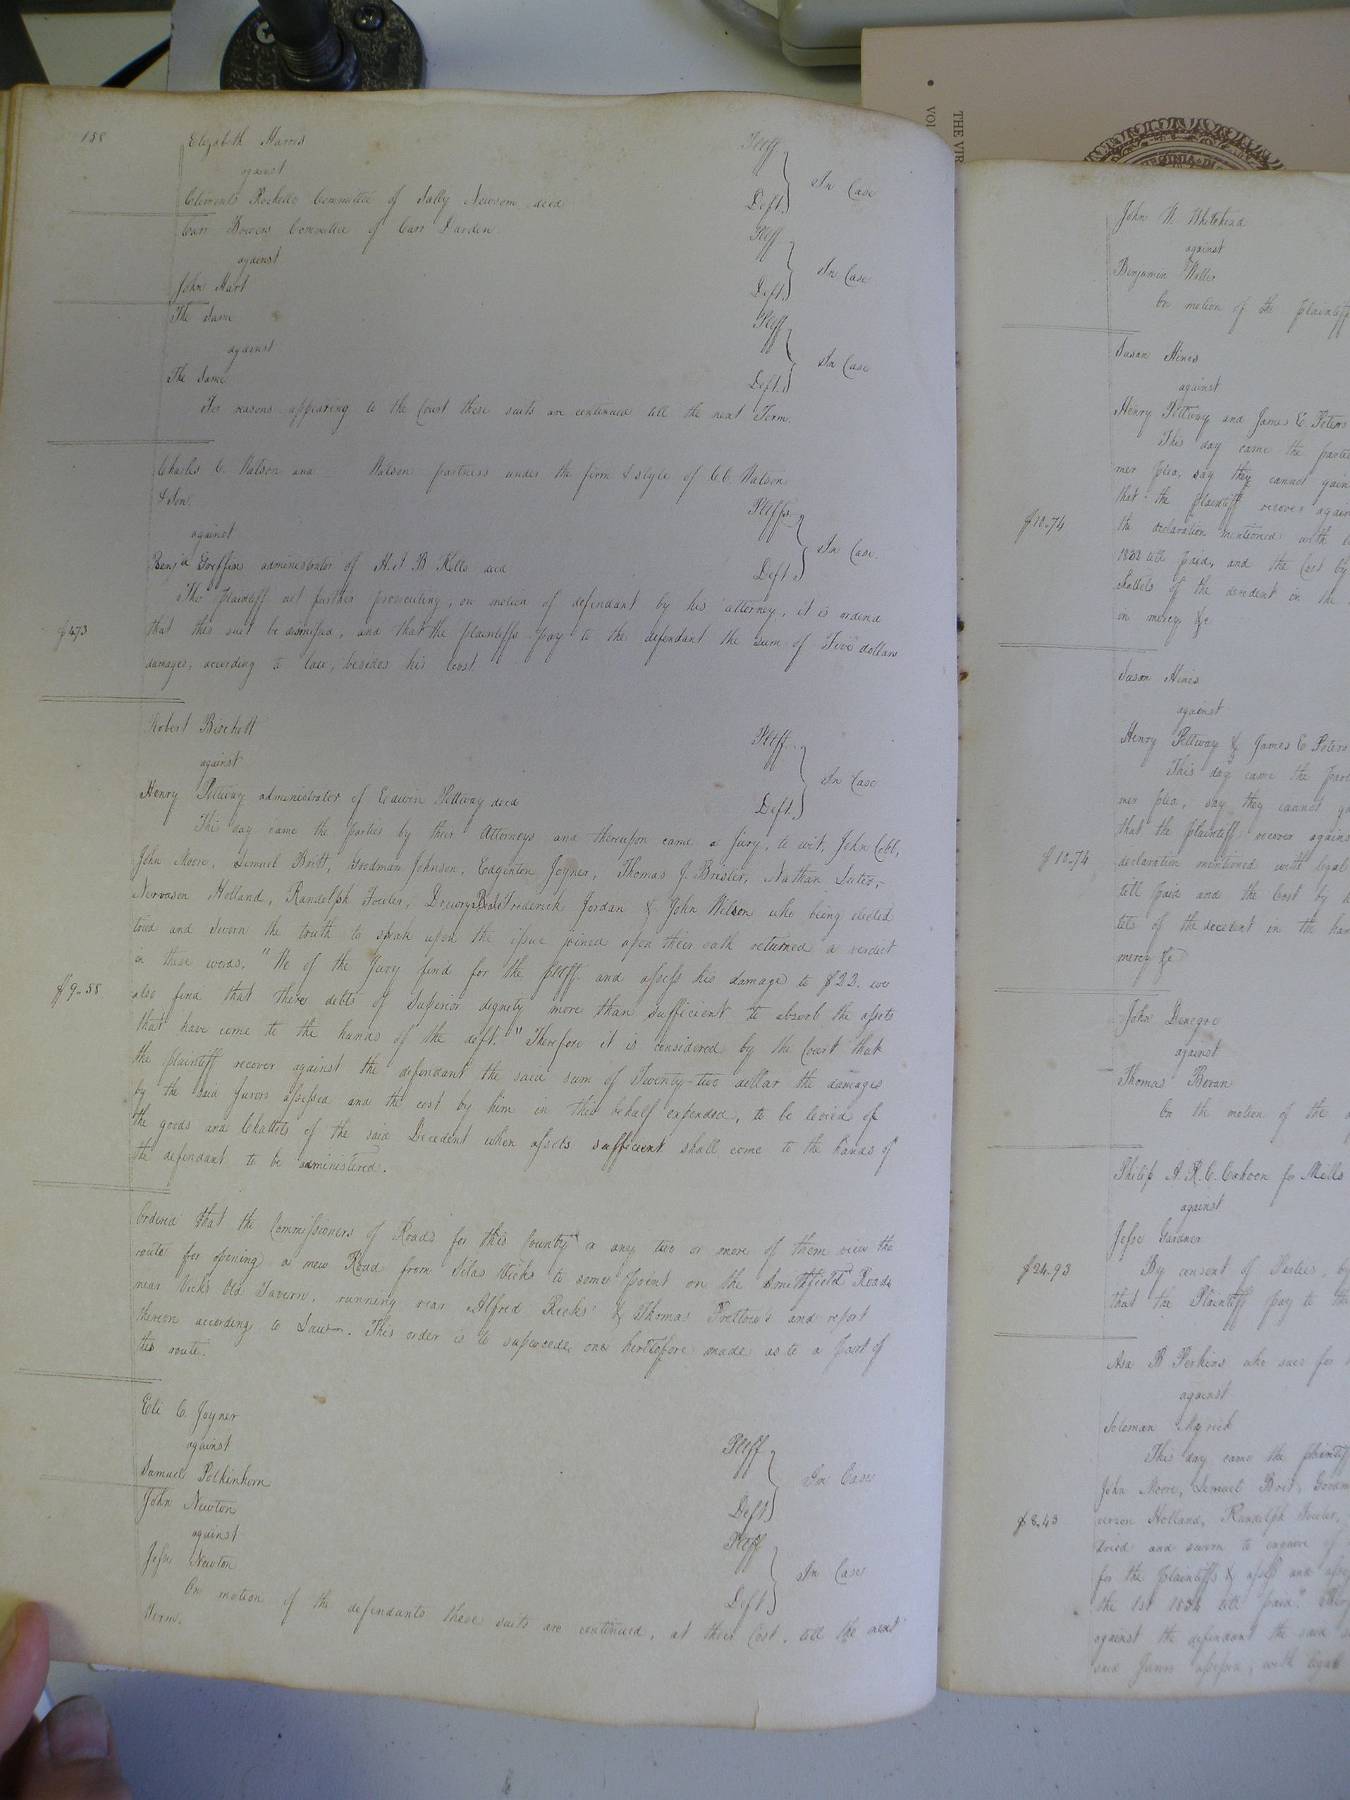 158
Elizabeth Harris Pltff
against In Case
Clements Rochelle Committee of Sally Newsom decd Deft.
Carr Bowers Committee of Carr Darden Pltff
against In Case
John Hart Deft.
The Same Pltff
against In Case
The Same Deft.
For reasons appearing to the Court these suits are continued till the next Term.
Charles C. Watson and Watson partners under the firm & style of C C. Watson
& Son. Pltffs
against In Case.
Benja Griffin administrator of H. J B Kello decd Deft.
The plaintiff not further prosecuting, on motion of defendant by his attorney, it is ordered
$4.73 that this suit be dismissed, and that the plaintiffs pay to the defendant the sum of Five dollars
damages, according to law, besides his cost.
Robert Birchett Pltff.
against In Case
Henry Pettway administrator of Edwin Pettway decd Deft.
This day came the parties by their Attorneys and thereupon came a Jury, to wit, John Cobb,
John Moore, Lemuel Britt, Goodman Johnson, Edginton Joyner, Thomas J. Brister, Nathan Luter,
Nerverson Holland, Randolph Fowler, Drewry Beale Frederick Jordan & John Wilson who being elected
tried and sworn the truth to speak upon the issue joined upon their oath returned a verdict
in these words, "We of the Jury find for the pltff. and assess his damage to $22. we
$9.58 also find that there debts of superior dignity more than sufficient to absorb the assets
that have come to the hands of the deft." Therefore it is considered by the Court that
the plaintiff recover against the defendant the said sum of Twenty-two dollar the damages
by the said Jurors assessed and the cost by him in this behalf expended, to be levied of
the goods and Chattels of the said Decedent when assets sufficient shall come to the hands of
the defendant to be administered.
Ordered that the Commissioners of Roads for this County or any two or more of them view the
route for opening a new Road from Silas Hicks to some point on the Smithfield Road
near Vicks Old Tavern, running near Alfred Ricks' & Thomas Pretlow's and report
thereon according to Law. This order is to supercede one heretofore made as to a part of
this route.
Eli C. Joyner Pltff
against In Case
Samuel Polkinhorn Deft.
John Newton Pltff
against In Case
Jesse Newton Deft.
On motion of the defendants these suits are continued, at their Cost, till the next
Term.
THE VIR
VOL
John W. Whitehead
against
Benjamin Weller
On motion of the plaintiff
Susan Hines
against
Henry Pettway and James E. Peters
This day came the parties
mer plea, say they cannot gain
$10.74 that the plaintiff recover again
the declaration mentioned with
1832 till paid, and the Cost by
Chattels of the decedent in the
in mercy &c
Susan Hines
against
Henry Pettway & James E Peters
This day came the part
mer plea, say they cannot ga
that the plaintiff recover agains
$10.74 declaration mentioned with legal
till paid and the Cost by h
tels of the decedent in the han
mercy &c
John Denegre
against
Thomas Bevan
On the motion of the
Philip A. R. C. Cahoon for Mills
against
Jesse Gardner
$24.93 By consent of Parties, by
that the Plaintiff pay to the
Asa B Perkins who sues for
against
Soloman Myrick
This day came the plaintiff
John Moore, Lemuel Britt, Goodm
$8.43 verson Holland, Randolph Fowler,
tried and sworn to enquire of
for the plaintiffs & assess
the 1st 1834 till paid."
against the defendant the said
said Jurors assessed, with legal